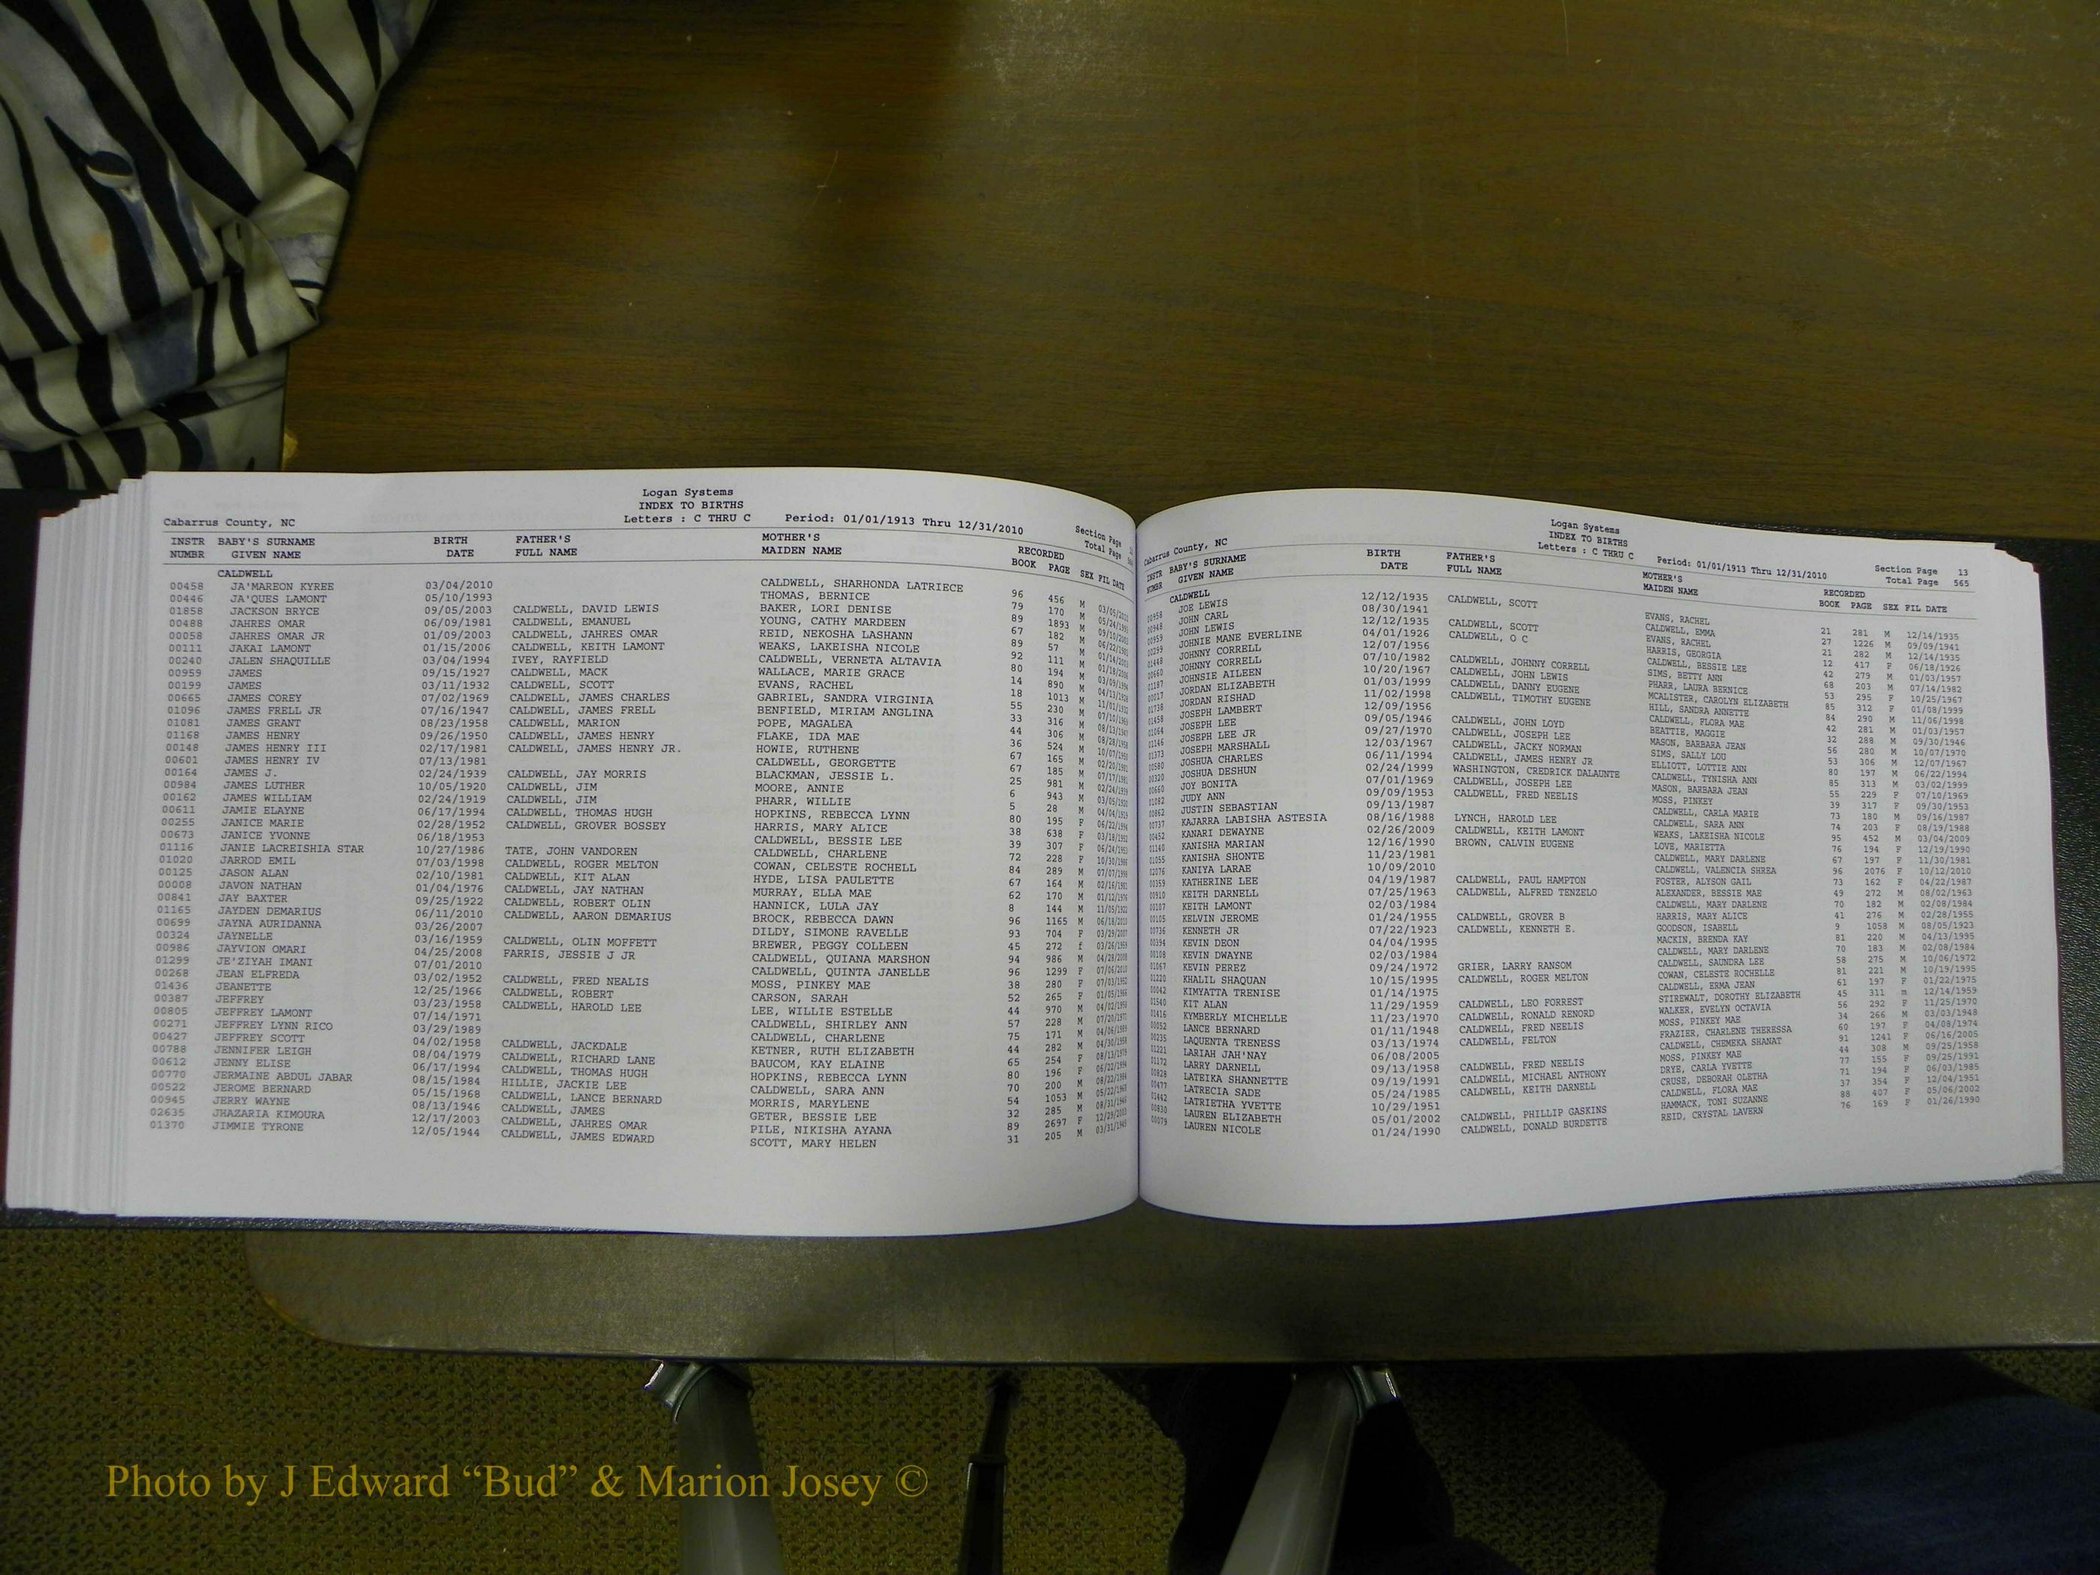 Logan Systems
INDEX TO BIRTHS
Cabarrus County, NC Letters : C THRU C Period: 01/01/1913 Thru 12/31/2010 Section Page
Total Page
INSTR BABY'S SURNAME BIRTH FATHER'S MOTHER'S RECORDED
NUMBR GIVEN NAME DATE FULL NAME MAIDEN NAME BOOK PAGE SEX FIL DATE
CALDWELL
00458 JA'MAREON KYREE 03/04/2010 CALDWELL, SHARHONDA LATRIECE 96 456 M 03/05/2010
00446 JA'QUES LAMONT 05/10/1993 THOMAS, BERNICE 79 170 M 05/24/1993
01858 JACKSON BRYCE 09/05/2003 CALDWELL, DAVID LEWIS BAKER, LORI DENISE 89 1893 M 09/10/2003
00488 JAHRES OMAR 06/09/1981 CALDWELL, EMANUEL YOUNG, CATHY MARDEEN 67 182 M 06/22/1981
00058 JAHRES OMAR JR 01/09/2003 CALDWELL, JAHRES OMAR REID, NEKOSHA LASHANN 89 57 M 01/14/2003
00111 JAKAI LAMONT 01/15/2006 CALDWELL, KEITH LAMONT WEAKS, LAKEISHA NICOLE 92 111 M 01/18/2006
00240 JALEN SHAQUILLE 03/04/1994 IVEY, RAYFIELD CALDWELL, VERNETA ALTAVIA 80 194 M 03/09/1994
00959 JAMES 09/15/1927 CALDWELL, MACK WALLACE, MARIE GRACE 14 890 M
00199 JAMES 03/11/1932 CALDWELL, SCOTT EVANS, RACHEL 18 1013 M
00665 JAMES COREY 07/02/1969 CALDWELL, JAMES CHARLES GABRIEL, SANDRA VIRGINIA 55 230 M 07/10/1969
01096 JAMES FRELL JR 07/16/1947 CALDWELL, JAMES FRELL BENFIELD, MIRIAM ANGLINA 33 316 M
01081 JAMES GRANT 08/23/1958 CALDWELL, MARION POPE, MAGALEA 44 306 M 08/28/1958
01168 JAMES HENRY 09/26/1950 CALDWELL, JAMES HENRY FLAKE, IDA MAE 36 524 M 10/07/1950
00148 JAMES HENRY III 02/17/1981 CALDWELL, JAMES HENRY JR. HOWIE, RUTHENE 67 165 M 02/20/1981
00601 JAMES HENRY IV 07/13/1981 CALDWELL, GEORGETTE 67 185 M 07/17/1981
00164 JAMES J. 02/24/1939 CALDWELL, JAY MORRIS BLACKMAN, JESSIE L. 25 981 M
00984 JAMES LUTHER 10/05/1920 CALDWELL, JIM MOORE, ANNIE 6 943 M
00162 JAMES WILLIAM 02/24/1919 CALDWELL, JIM PHARR, WILLIE 5 28 M
00611 JAMIE ELAYNE 06/17/1994 CALDWELL, THOMAS HUGH HOPKINS, REBECCA LYNN 80 195 F
00255 JANICE MARIE 02/28/1952 CALDWELL, GROVER BOSSEY HARRIS, MARY ALICE 38 638 F
00673 JANICE YVONNE 06/18/1953 CALDWELL, BESSIE LEE 39 307 F
01116 JANIE LACREISHIA STAR 10/27/1986 TATE, JOHN VANDOREN CALDWELL, CHARLENE 72 228 F
01020 JARROD EMIL 07/03/1998 CALDWELL, ROGER MELTON COWAN, CELESTE ROCHELL 84 289 M
00125 JASON ALAN 02/10/1981 CALDWELL, KIT ALAN HYDE, LISA PAULETTE 67 164 M
00008 JAVON NATHAN 01/04/1976 CALDWELL, JAY NATHAN MURRAY, ELLA MAE 62 170 M
00841 JAY BAXTER 09/25/1922 CALDWELL, ROBERT OLIN HANNICK, LULA JAY 8 144 M
01165 JAYDEN DEMARIUS 06/11/2010 CALDWELL, AARON DEMARIUS BROCK, REBECCA DAWN 96 1165 M
00699 JAYNA AURIDANNA 03/26/2007 DILDY, SIMONE RAVELLE 93 704 F
00324 JAYNELLE 03/16/1959 CALDWELL, OLIN MOFFETT BREWER, PEGGY COLLEEN 45 272 f
00986 JAYVION OMARI 04/25/2008 FARRIS, JESSIE J JR CALDWELL, QUIANA MARSHON 94 986 M
01299 JE'ZIYAH IMANI 07/01/2010 CALDWELL, QUINTA JANELLE 96 1299 F
00268 JEAN ELFREDA 03/02/1952 CALDWELL, FRED NEALIS MOSS, PINKEY MAE 38 280 F
01436 JEANETTE 12/25/1966 CALDWELL, ROBERT CARSON, SARAH 52 265 F
00387 JEFFREY 03/23/1958 CALDWELL, HAROLD LEE LEE, WILLIE ESTELLE 44 970 M
00805 JEFFREY LAMONT 07/14/1971 CALDWELL, SHIRLEY ANN 57 228 M
00271 JEFFREY LYNN RICO 03/29/1989 CALDWELL, CHARLENE 75 171 M
00427 JEFFREY SCOTT 04/02/1958 CALDWELL, JACKDALE KETNER, RUTH ELIZABETH 44 282 M
00788 JENNIFER LEIGH 08/04/1979 CALDWELL, RICHARD LANE BAUCOM, KAY ELAINE 65 254 F
00612 JENNY ELISE 06/17/1994 CALDWELL, THOMAS HUGH HOPKINS, REBECCA LYNN 80 196 F
00770 JERMAINE ABDUL JABAR 08/15/1984 HILLIE, JACKIE LEE CALDWELL, SARA ANN 70 200 M
00522 JEROME BERNARD 05/15/1968 CALDWELL, LANCE BERNARD MORRIS, MARYLENE 54 1053 M
00945 JERRY WAYNE 08/13/1946 CALDWELL, JAMES GETER, BESSIE LEE 32 285 M
02635 JHAZARIA KIMOURA 12/17/2003 CALDWELL, JAHRES OMAR PILE, NIKISHA AYANA 89 2697 F
01370 JIMMIE TYRONE 12/05/1944 CALDWELL, JAMES EDWARD SCOTT, MARY HELEN 31 205 M
Logan Systems
INDEX TO BIRTHS
Cabarrus County, NC Letters : C THRU C Period: 01/01/1913 Thru 12/31/2010 Section Page 13
Total Page 565
INSTR BABY'S SURNAME BIRTH FATHER'S MOTHER'S RECORDED
NUMBR GIVEN NAME DATE FULL NAME MAIDEN NAME BOOK PAGE SEX FIL DATE
CALDWELL
00958 JOE LEWIS 12/12/1935 CALDWELL, SCOTT EVANS, RACHEL 21 281 M 12/14/1935
00948 JOHN CARL 08/30/1941 CALDWELL, EMMA 27 1226 M 09/09/1941
00959 JOHN LEWIS 12/12/1935 CALDWELL, SCOTT EVANS, RACHEL 21 282 M 12/14/1935
00299 JOHNIE MANE EVERLINE 04/01/1926 CALDWELL, O C HARRIS, GEORGIA 12 417 F 06/18/1926
01448 JOHNNY CORRELL 12/07/1956 CALDWELL, BESSIE LEE 42 279 M 01/03/1957
00660 JOHNNY CORRELL 07/10/1982 CALDWELL, JOHNNY CORRELL SIMS, BETTY ANN 68 203 M 07/14/1982
01187 JOHNSIE AILEEN 10/20/1967 CALDWELL, JOHN LEWIS PHARR, LAURA BERNICE 53 295 F 10/25/1967
00017 JORDAN ELIZABETH 01/03/1999 CALDWELL, DANNY EUGENE MCALISTER, CAROLYN ELIZABETH 85 312 F 01/08/1999
01738 JORDAN RISHAD 11/02/1998 CALDWELL, TIMOTHY EUGENE HILL, SANDRA ANNETTE 84 290 M 11/06/1998
01458 JOSEPH LAMBERT 12/09/1956 CALDWELL, FLORA MAE 42 281 M 01/03/1957
01064 JOSEPH LEE 09/05/1946 CALDWELL, JOHN LOYD BEATTIE, MAGGIE 32 288 M 09/30/1946
01146 JOSEPH LEE JR 09/27/1970 CALDWELL, JOSEPH LEE MASON, BARBARA JEAN 56 280 M 10/07/1970
01373 JOSEPH MARSHALL 12/03/1967 CALDWELL, JACKY NORMAN SIMS, SALLY LOU 53 306 M 12/07/1967
00580 JOSHUA CHARLES 06/11/1994 CALDWELL, JAMES HENRY JR ELLIOTT, LOTTIE ANN 80 197 M 06/22/1994
00320 JOSHUA DESHUN 02/24/1999 WASHINGTON, CREDRICK DALAUNTE CALDWELL, TYNISHA ANN 85 313 M 03/02/1999
00660 JOY BONITA 07/01/1969 CALDWELL, JOSEPH LEE MASON, BARBARA JEAN 55 229 F 07/10/1969
01082 JUDY ANN 09/09/1953 CALDWELL, FRED NEELIS MOSS, PINKEY 39 317 F 09/30/1953
00862 JUSTIN SEBASTIAN 09/13/1987 CALDWELL, CARLA MARIE 73 180 M 09/16/1987
00737 KAJARRA LABISHA ASTESIA 08/16/1988 LYNCH, HAROLD LEE CALDWELL, SARA ANN 74 203 F 08/19/1988
00452 KANARI DEWAYNE 02/26/2009 CALDWELL, KEITH LAMONT WEAKS, LAKEISHA NICOLE 95 452 M 03/04/2009
01140 KANISHA MARIAN 12/16/1990 BROWN, CALVIN EUGENE LOVE, MARIETTA 76 194 F 12/19/1990
01055 KANISHA SHONTE 11/23/1981 CALDWELL, MARY DARLENE 67 197 F 11/30/1981
02076 KANIYA LARAE 10/09/2010 CALDWELL, VALENCIA SHREA 96 2076 F 10/12/2010
00359 KATHERINE LEE 04/19/1987 CALDWELL, PAUL HAMPTON FOSTER, ALYSON GAIL 73 162 F 04/22/1987
00910 KEITH DARNELL 07/25/1963 CALDWELL, ALFRED TENZELO ALEXANDER, BESSIE MAE 49 272 M 08/02/1963
00107 KEITH LAMONT 02/03/1984 CALDWELL, MARY DARLENE 70 182 M 02/08/1984
00105 KELVIN JEROME 01/24/1955 CALDWELL, GROVER B HARRIS, MARY ALICE 41 276 M 02/28/1955
00736 KENNETH JR 07/22/1923 CALDWELL, KENNETH E. GOODSON, ISABELL 9 1058 M 08/05/1923
00394 KEVIN DEON 04/04/1995 MACKIN, BRENDA KAY 81 220 M 04/13/1995
00108 KEVIN DWAYNE 02/03/1984 CALDWELL, MARY DARLENE 70 183 M 02/08/1984
01067 KEVIN PEREZ 09/24/1972 GRIER, LARRY RANSOM CALDWELL, SAUNDRA LEE 58 275 M 10/06/1972
01220 KHALIL SHAQUAN 10/15/1995 CALDWELL, ROGER MELTON COWAN, CELESTE ROCHELLE 81 221 M 10/19/1995
00042 KIMYATTA TRENISE 01/14/1975 CALDWELL, ERMA JEAN 61 197 F 01/22/1975
01540 KIT ALAN 11/29/1959 CALDWELL, LEO FORREST STIREWALT, DOROTHY ELIZABETH 45 311 m 12/14/1959
01416 KYMBERLY MICHELLE 11/23/1970 CALDWELL, RONALD RENORD WALKER, EVELYN OCTAVIA 56 292 F 11/25/1970
00052 LANCE BERNARD 01/11/1948 CALDWELL, FRED NEELIS MOSS, PINKEY MAE 34 266 M 03/03/1948
00235 LAQUENTA TRENESS 03/13/1974 CALDWELL, FELTON FRAZIER, CHARLENE THERESSA 60 197 F 04/08/1974
01221 LARIAH JAH'NAY 06/08/2005 CALDWELL, CHEMEKA SHANAT 91 1241 F 06/16/2005
01172 LARRY DARNELL 09/13/1958 CALDWELL, FRED NEELIS MOSS, PINKEY MAE 44 308 M 09/25/1958
00828 LATEIKA SHANNETTE 09/19/1991 CALDWELL, MICHAEL ANTHONY DRYE, CARLA YVETTE 77 155 F 09/25/1991
00477 LATRECIA SADE 05/24/1985 CALDWELL, KEITH DARNELL CRUSE, DEBORAH OLETHA 71 194 F 06/03/1985
01442 LATRIETHA YVETTE 10/29/1951 CALDWELL, FLORA MAE 37 354 F 12/04/1951
00830 LAUREN ELIZABETH 05/01/2002 CALDWELL, PHILLIP GASKINS HAMMACK, TONI SUZANNE 88 407 F 05/06/2002
00079 LAUREN NICOLE 01/24/1990 CALDWELL, DONALD BURDETTE REID, CRYSTAL LAVERN 76 169 F 01/26/1990
Photo by J Edward “Bud” & Marion Josey ©